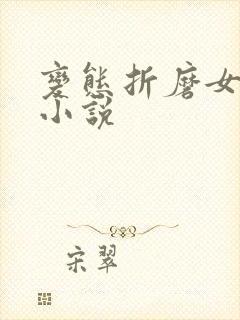 變態折磨女
小說
宋翠